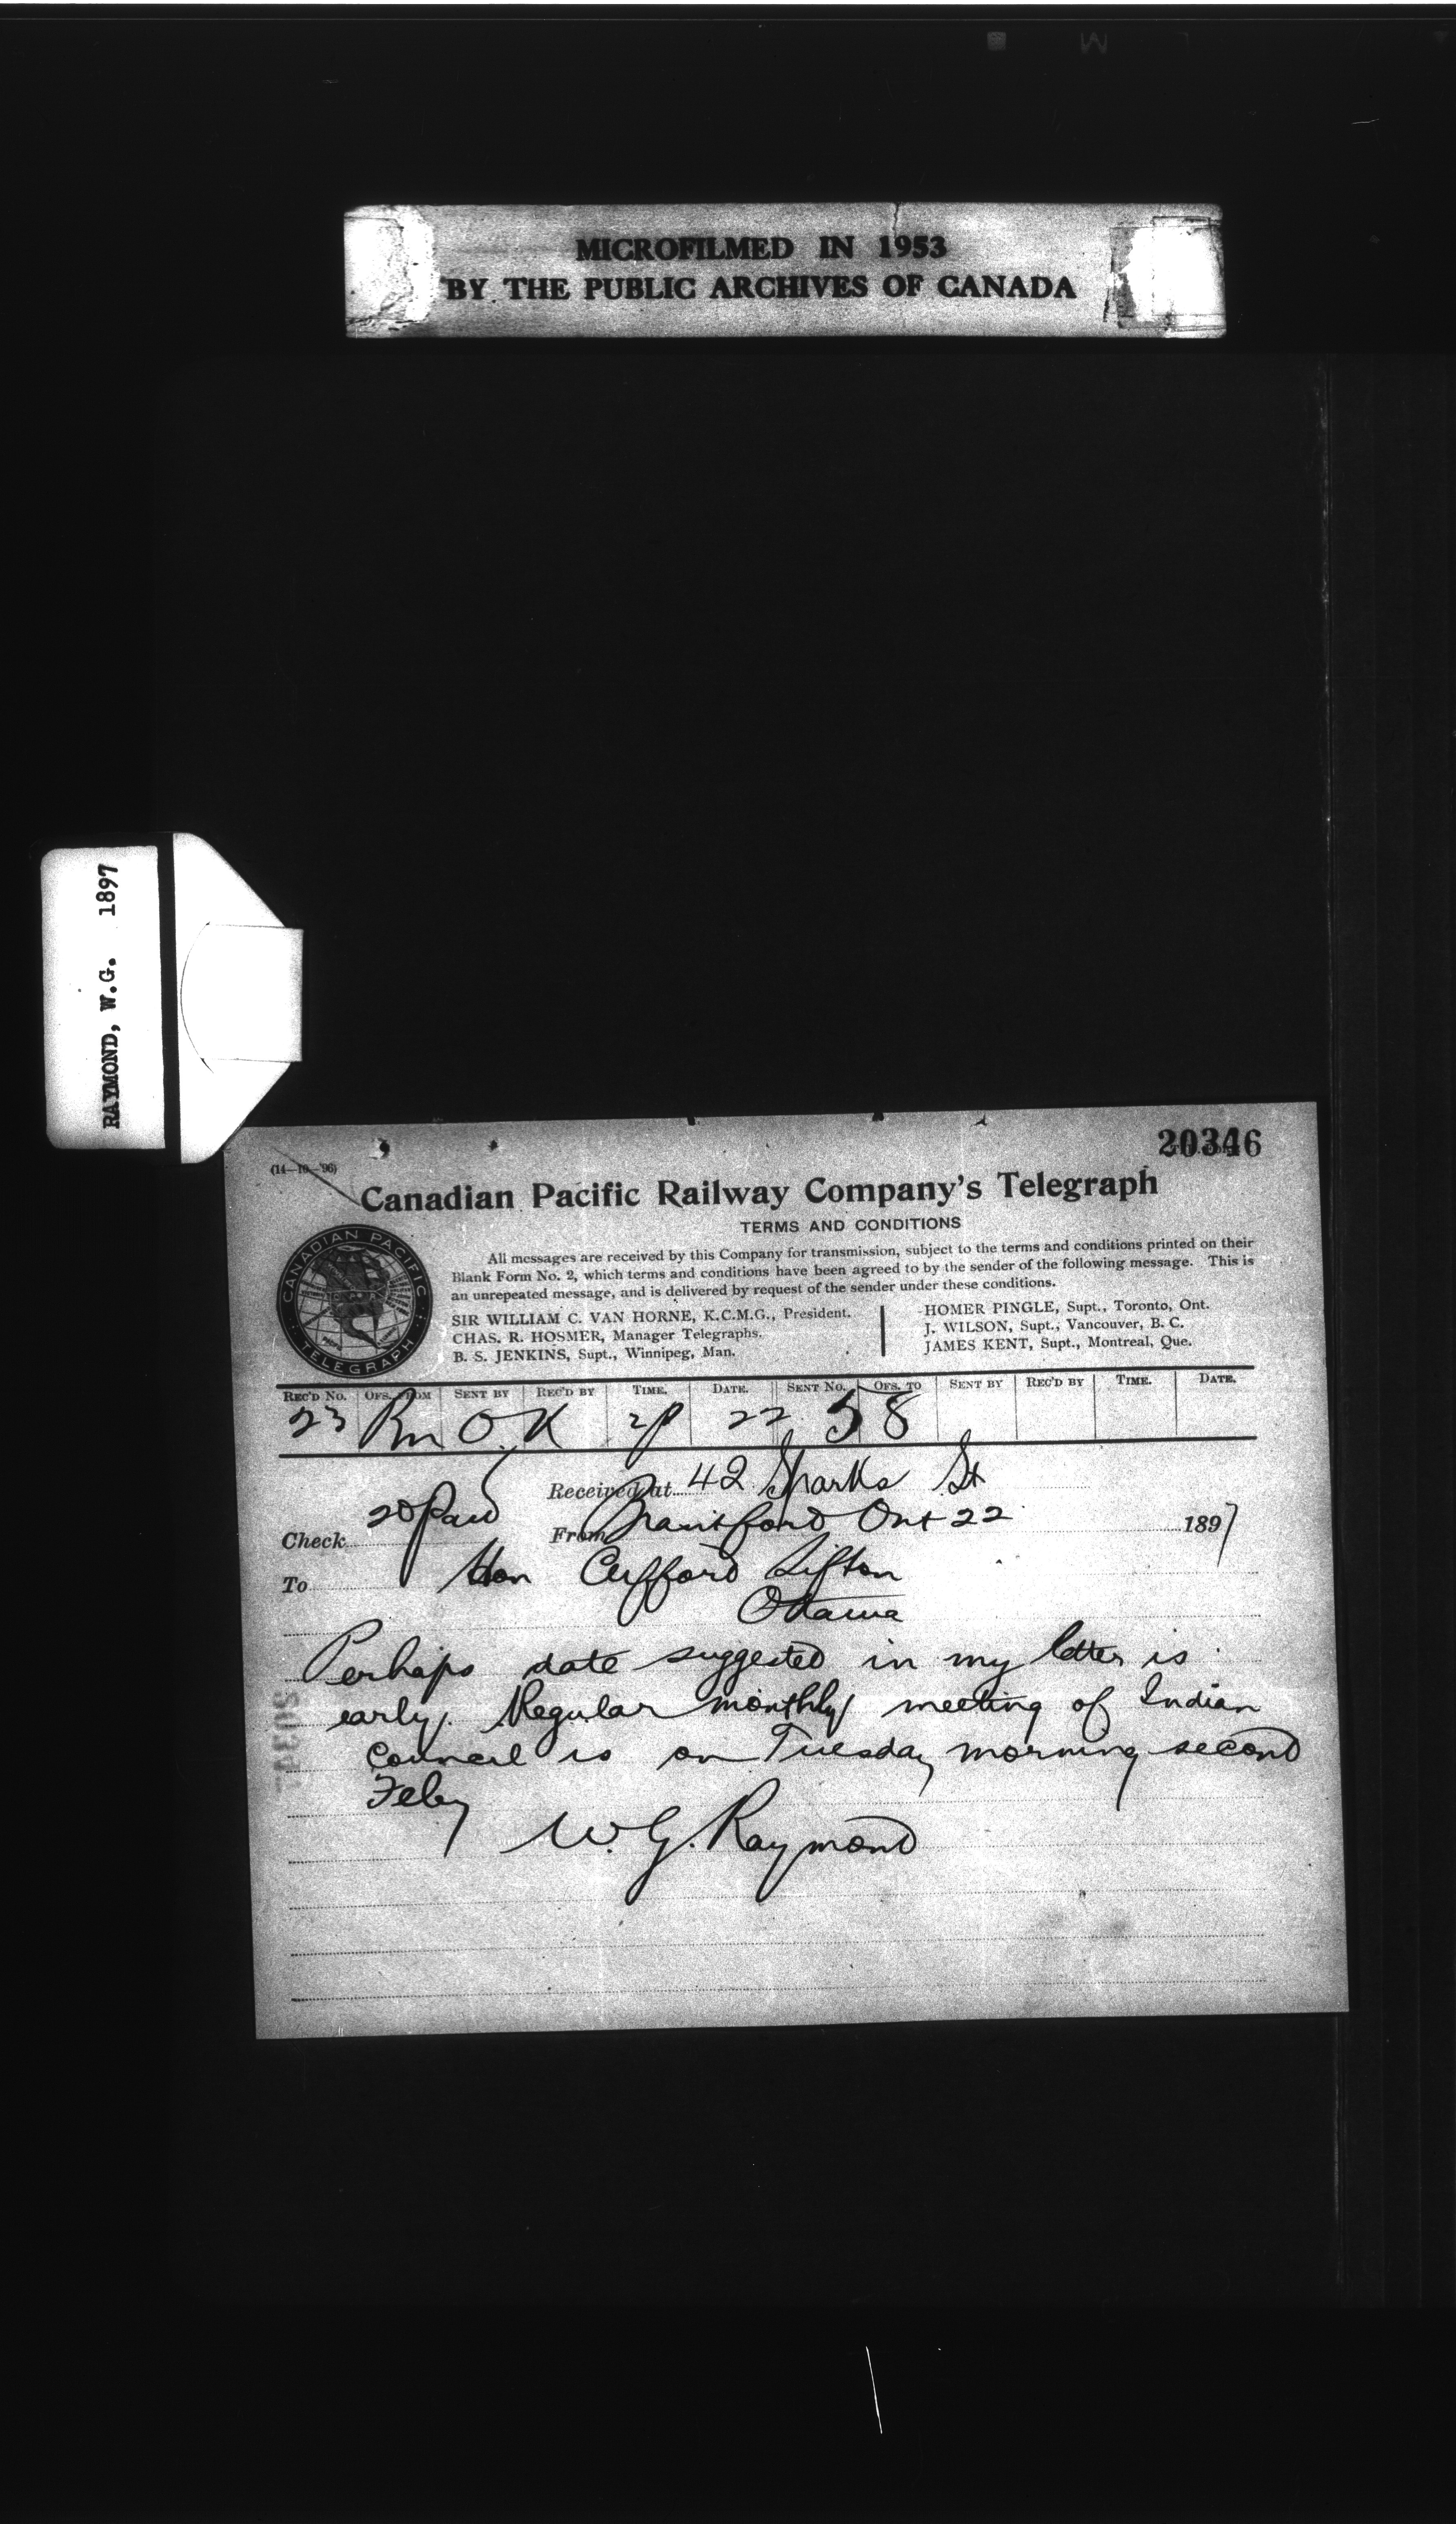 MICROFILMED IN 1953
BY THE PUBLIC ARCHIVES OF CANADA
RAYMOND, W.G. 1897
20346
(14—10—'96)
Canadian Pacific Railway Company's Telegraph
TERMS AND CONDITIONS
CANADIAN PACIFIC
TELEGRAPH
All messages are received by this Company for transmission, subject to the terms and conditions printed on their
Blank Form No. 2, which terms and conditions have been agreed to by the sender of the following message. This is
an unrepeated message, and is delivered by request of the sender under these conditions.
SIR WILLIAM C. VAN HORNE, K.C.M.G., President.
CHAS. R. HOSMER, Manager Telegraphs.
B. S. JENKINS, Supt., Winnipeg, Man.
HOMER PINGLE, Supt., Toronto, Ont.
J. WILSON, Supt., Vancouver, B. C.
JAMES KENT, Supt., Montreal, Que.
REC'D NO. OFS. FROM SENT BY REC'D BY TIME. DATE. SENT NO. OFS. TO SENT BY REC'D BY TIME. DATE.
23 Rm O K 2p 22 58
Received at 42 Sparks St
Check 20 Paid From Brantford Ont 22 1897
To Hon Clifford Sifton
Ottawa
Perhaps date suggested in my letter is
early. Regular monthly meeting of Indian
Council is on Tuesday morning second
Feby
W. G. Raymond